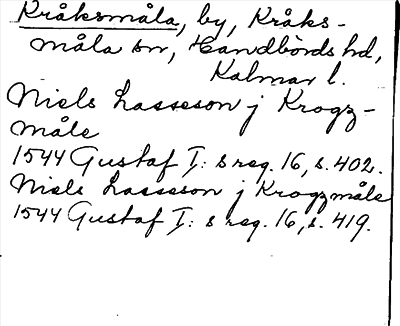 Kråksmåla, by, Kråks-
måla sn, Handbörds hd,
Kalmar l.
Niels Lasseson j Krogz-
måle
1544 Gustaf I: s reg. 16, s. 402.
Niels Lasseson j Krogzmåle
1544 Gustaf I: s reg. 16, s. 419.